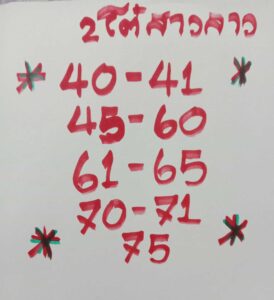 2โต๊สาวลาว
40-41
45-60
61-65
70-71
75